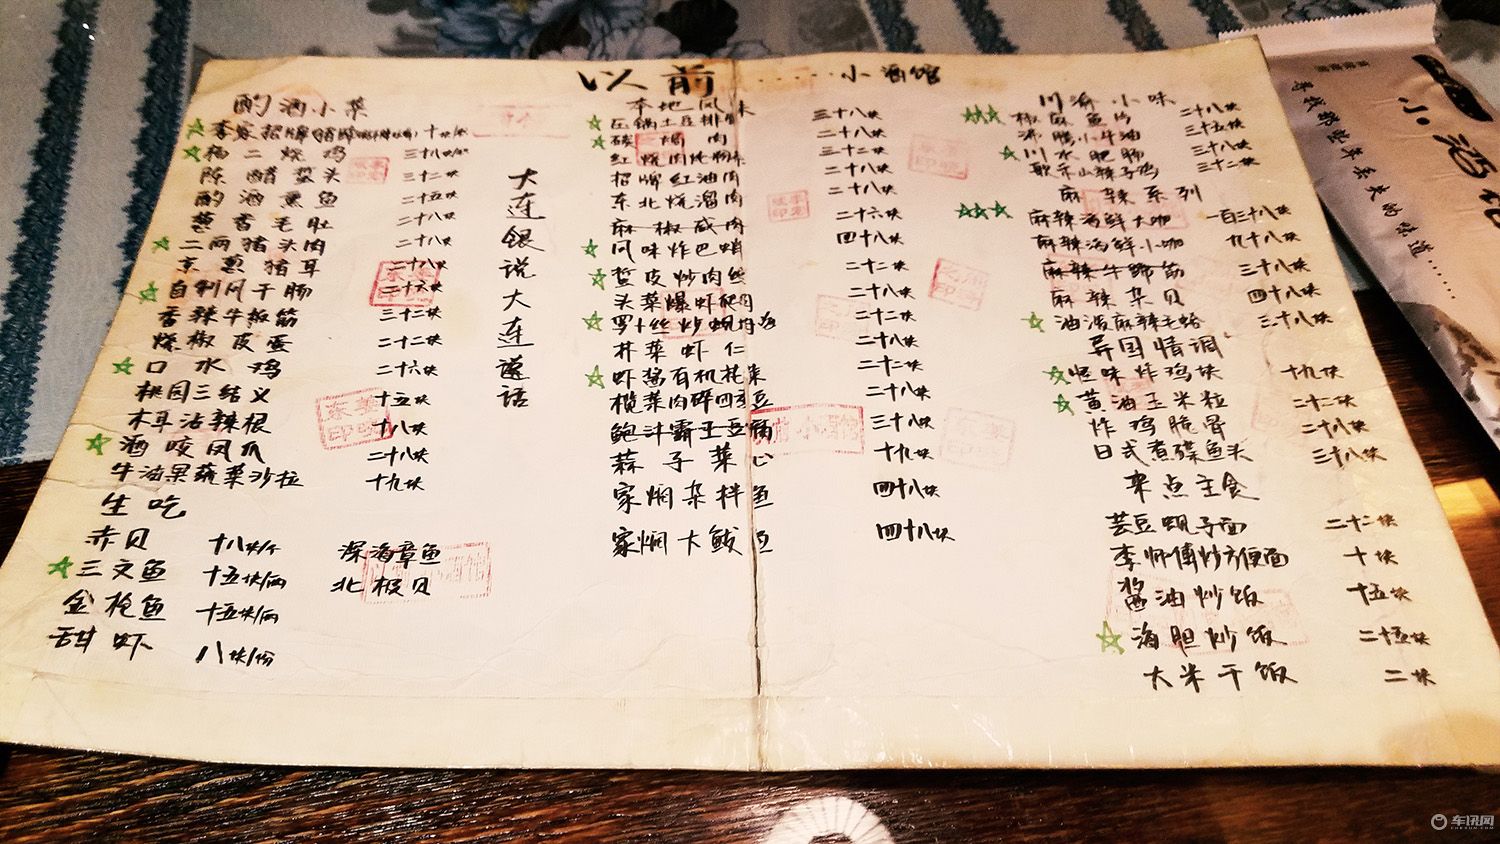 以前......小酒馆
酌酒小菜
李家招牌猪蹄 十块/个
福二烧鸡 三十八块/只
陈醋蜇头 三十二块
酌酒熏鱼 二十五块
葱香毛肚 二十八块
二两猪头肉 二十八块
京葱猪耳 二十八块
自制风干肠 二十六块
香辣牛板筋 三十二块
烧椒皮蛋 二十二块
口水鸡 二十六块
桃园三结义 十五块
木耳沾辣根 十八块
酒咬凤爪 二十八块
牛油果蔬菜沙拉 十九块
生吃
赤贝 十八块/个
三文鱼 十五块/两
金枪鱼 十五块/两
甜虾 八块/份
深海章鱼
北极贝
大连银说大连话
本地风味
压锅土豆排骨 三十八块
碳焗肉 二十八块
红烧肉炖粉条 三十二块
招牌红油肉 二十八块
东北烧溜肉 二十八块
麻椒咸肉 二十六块
风味炸巴蛸 四十八块
蜇皮炒肉丝 二十二块
头菜爆虾爬肉 二十八块
萝卜丝炒蚬肉海 二十二块
芥菜虾仁 二十八块
虾酱有机花菜 二十二块
榄菜肉碎四季豆 二十八块
鲍汁霸王豆腐 三十八块
蒜子菜心 十九块
家焖杂拌鱼 四十八块
家焖大鲅鱼 四十八块
川渝小味
椒麻鱼片 二十八块
沸腾小牛油 三十五块
川水肥肠 三十八块
歌乐山辣子鸡 三十二块
麻辣系列
麻辣海鲜大咖 一百三十八块
麻辣海鲜小咖 九十八块
麻辣牛蹄筋 三十八块
麻辣杂贝 四十八块
油泼麻辣毛蛤 三十八块
异国情调
怪味炸鸡块 十九块
黄油玉米粒 二十二块
炸鸡脆骨 二十八块
日式煮碟鱼头 三十八块
来点主食
芸豆蚬子面 二十二块
李师傅炒方便面 十块
酱油炒饭 十五块
海胆炒饭 二十五块
大米干饭 二块
小酒馆
寻找那些年系夫的味道......
车讯网